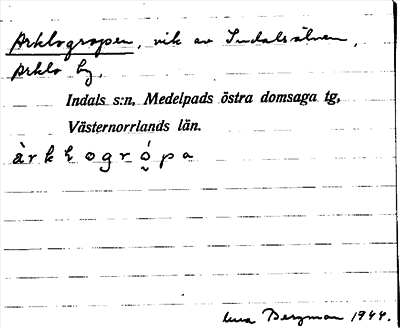 Arklogropen, vik av Indalsälven,
Arklo by,
Indals s:n, Medelpads östra domsaga tg,
Västernorrlands län.
àrklogrópa
Bergman 1944.